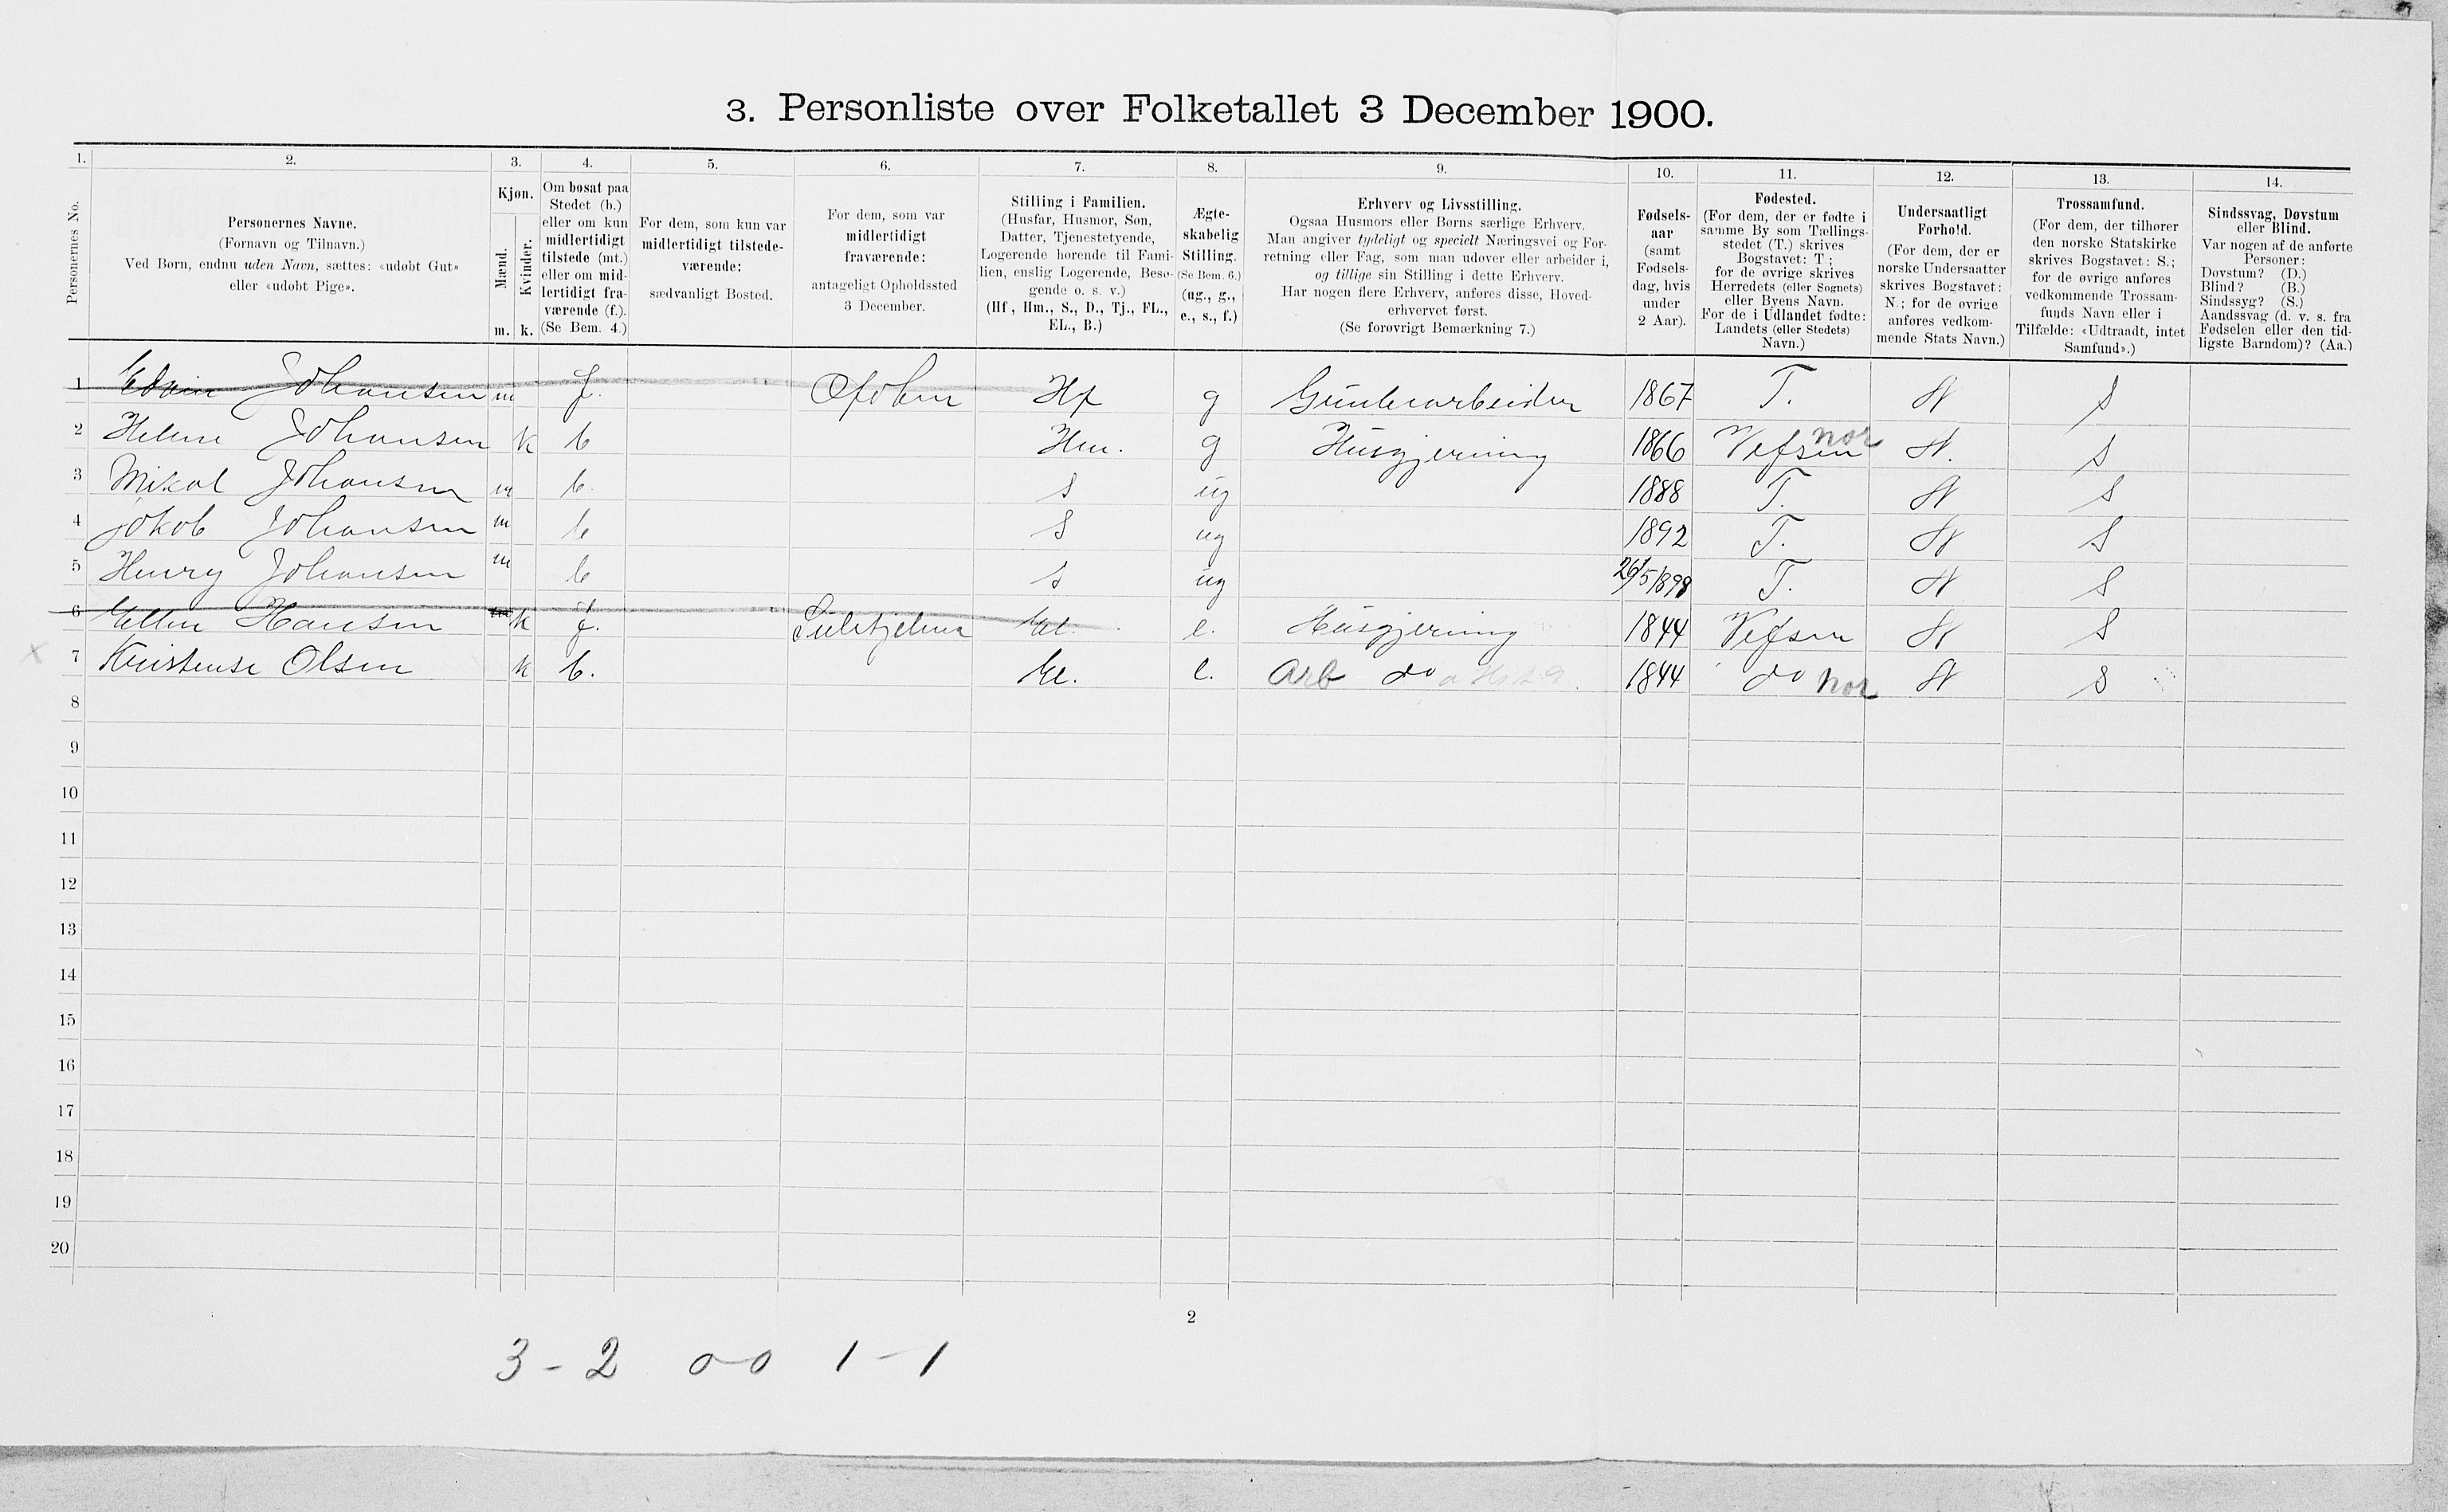 3. Personliste over Folketallet 3 December 1900.
1. 2. 3. 4. 5. 6. 7. 8. 9. 10. 11. 12. 13. 14.
Personernes No.
Personernes Navne.
(Fornavn og Tilnavn.)
Ved Børn, endnu uden Navn, sættes: «udøbt Gut»
eller «udøbt Pige».
Kjøn.
Mænd.
Kvinder.
m. k.
Om bosat paa
Stedet (b.)
eller om kun
midlertidigt
tilstede (mt.)
eller om mid-
lertidigt fra-
værende (f.).
(Se Bem. 4.)
For dem, som kun var
midlertidigt tilstede-
værende:
sædvanligt Bosted.
For dem, som var
midlertidigt
fraværende:
antageligt Opholdssted
3 December.
Stilling i Familien.
(Husfar, Husmor, Søn,
Datter, Tjenestetyende,
Logerende hørende til Fami-
lien, enslig Logerende, Besø-
gende o. s. v.)
(Hf., Hm., S., D., Tj., FL.,
EL., B.)
Ægte-
skabelig
Stilling.
(Se Bem. 6.)
(ug., g.,
e., s., f.)
Erhverv og Livsstilling.
Ogsaa Husmors eller Børns særlige Erhverv.
Man angiver tydeligt og specielt Næringsvei og For-
retning eller Fag, som man udøver eller arbeider i,
og tillige sin Stilling i dette Erhverv.
Har nogen flere Erhverv, anføres disse, Hoved-
erhvervet først.
(Se forøvrigt Bemærkning 7.)
Fødsels-
aar
(samt
Fødsels-
dag, hvis
under
2 Aar).
Fødested.
(For dem, der er fødte i
samme By som Tællings-
stedet (T.) skrives
Bogstavet: T;
for de øvrige skrives
Herredets (eller Sognets)
eller Byens Navn.
For de i Udlandet fødte:
Landets (eller Stedets)
Navn.)
Undersaatligt
Forhold.
(For dem, der er
norske Undersaatter
skrives Bogstavet:
N.; for de øvrige
anføres vedkom-
mende Stats Navn.)
Trossamfund.
(For dem, der tilhører
den norske Statskirke
skrives Bogstavet: S.;
for de øvrige anføres
vedkommende Trossam-
funds Navn eller i
Tilfælde: «Udtraadt, intet
Samfund».)
Sindssvag, Døvstum
eller Blind.
Var nogen af de anførte
Personer:
Døvstum? (D.)
Blind? (B.)
Sindssyg? (S.)
Aandssvag (d. v. s. fra
Fødselen eller den tid-
ligste Barndom)? (Aa.)
1 Edvin Johansen m f. Ofoten Hf g Grubearbeider 1867 T. N S
2 Helene Johansen k b Hm. g Husgjerning 1866 Vefsen Nor N. S
3 Mikal Johansen m b. S ug 1888 T. N S
4 Jokob Johansen m b S ug 1892 T. N S
5 Henry Johansen m b S ug 26/5 1899 T. N S
6 Ellen Hansen k f. Sulitjelma El. e. Husgjerning 1844 Vefsen N S
x 7 Kristense Olsen k b. El. e. Arb do 1844 do Nor N S
8
9
10
11
12
13
14
15
16
17
18
19
20
2
3 - 2 0-0 1-1